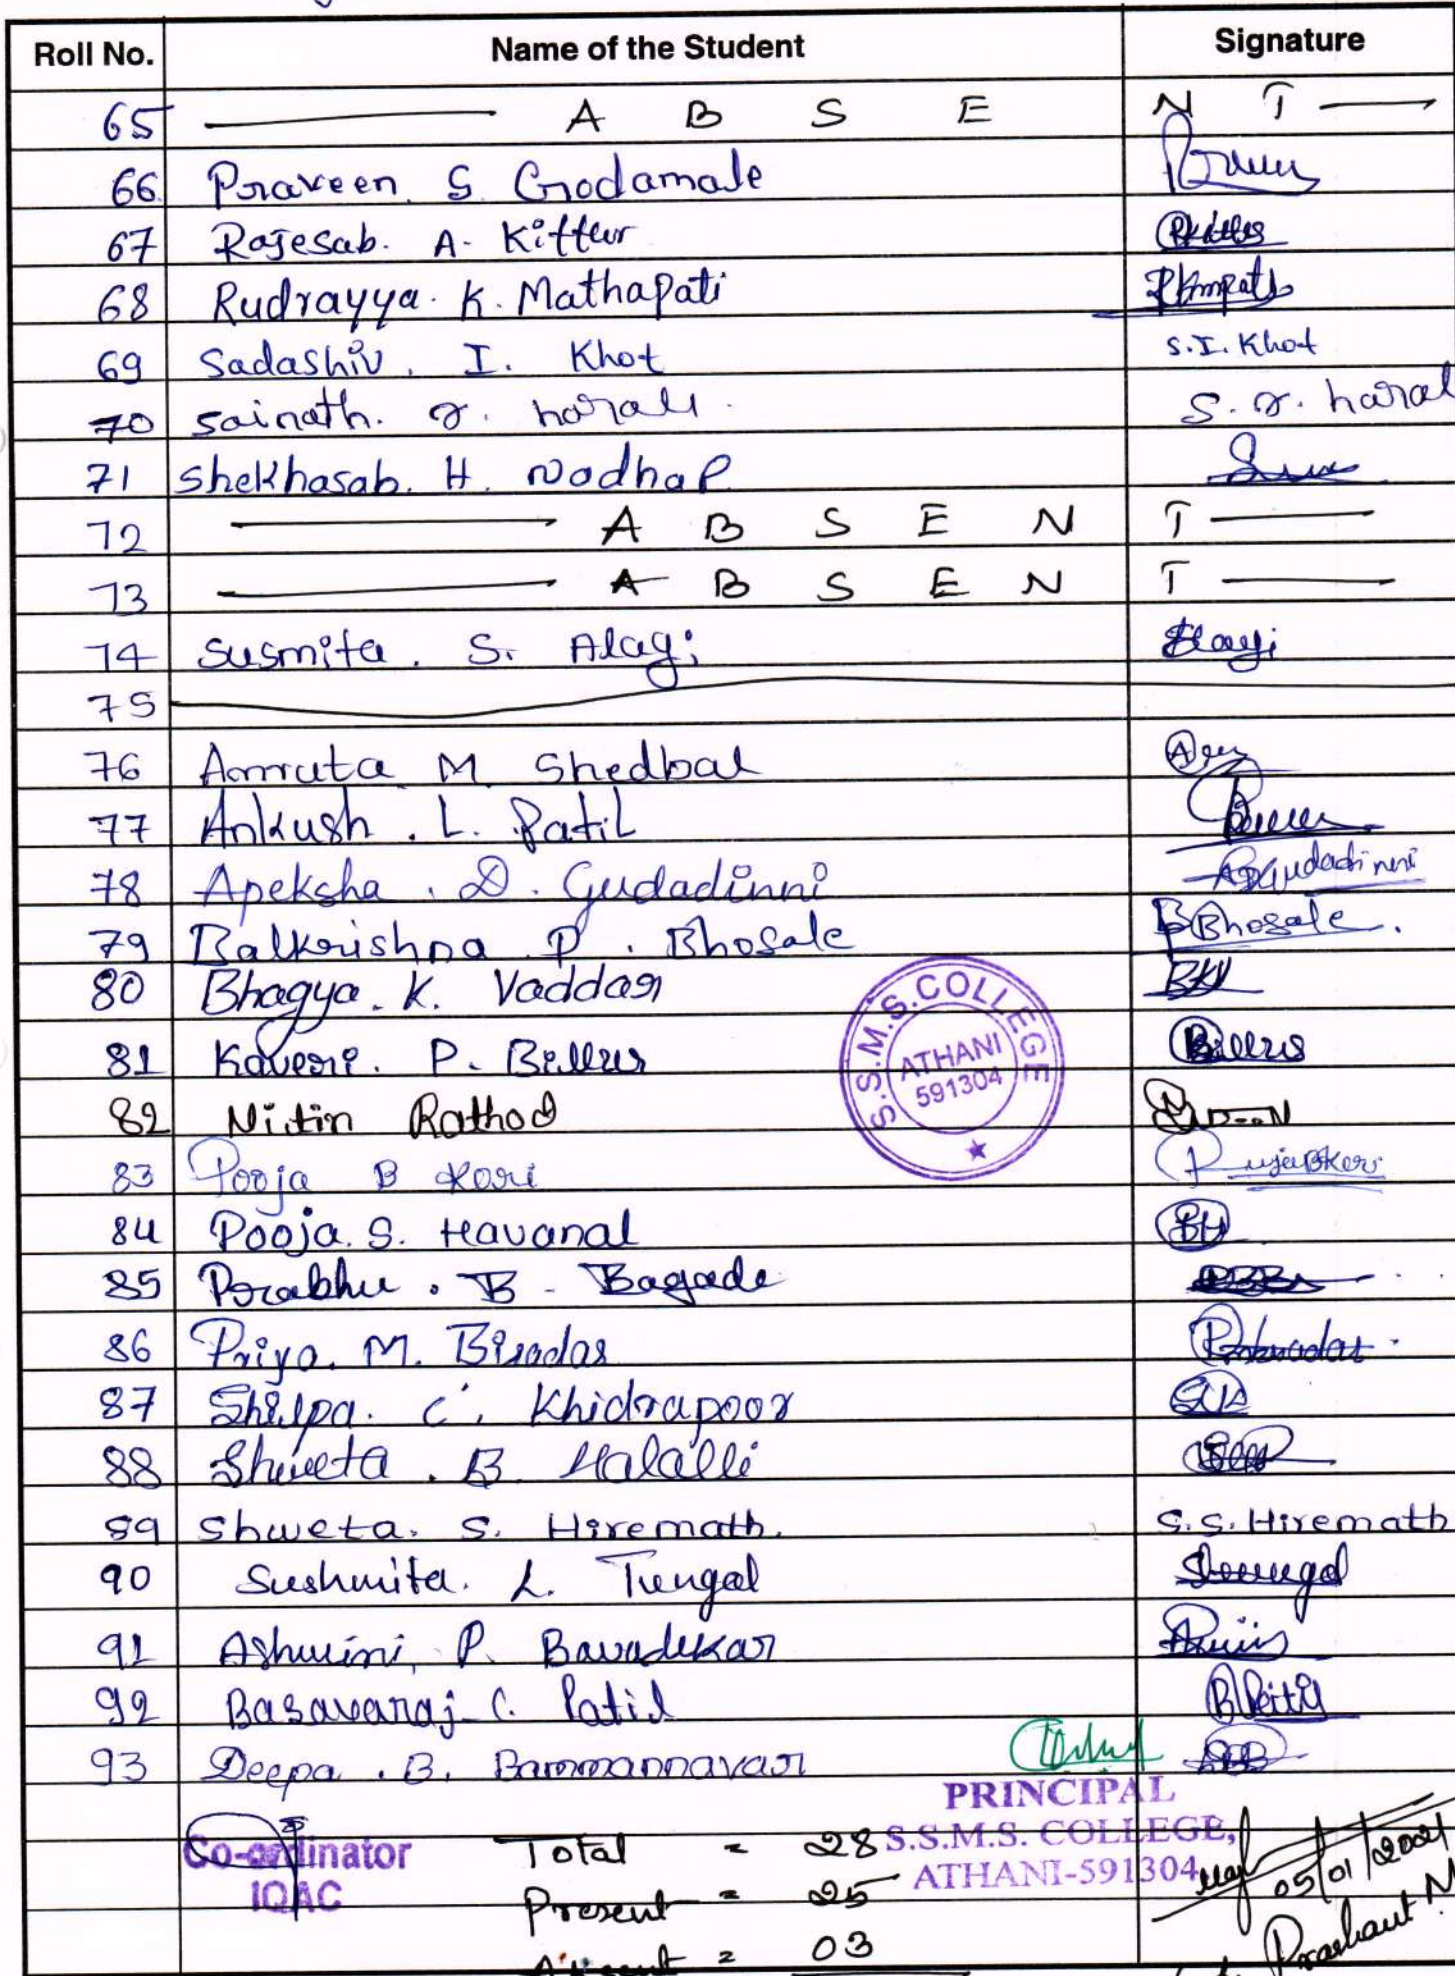 Roll No. Name of the Student Signature
65 A B S E N T
66 Praveen. S. Godamale
67 Rajesab. A. Kittur
68 Rudrayya. K. Mathapati
69 Sadashiv. I. Khot S.I. Khot
70 sainath. r. harali. S. r. haral
71 Shekhasab. H. Nadhaf
72 A B S E N T
73 A B S E N T
74 Susmita. S. Alagi
75
76 Amruta M Shedbal
77 Ankush. L. Patil
78 Apeksha. D. Gudadinni Gudadinni
79 Balkrishna P. Bhosale Bhosale.
80 Bhagya. K. Vaddar
81 Kaveri. P. Billur
82 Nitin Rathod
83 Pooja B Kori
84 Pooja. S. Havanal
85 Prabhu. B. Bagade
86 Priya. M. Biradar
87 Shilpa. C. Khidrapoor
88 Shweta. B. Halalli
89 Shweta. S. Hiremath. S.S. Hiremath
90 Sushmita. L. Tungal
91 Ashwini. P. Bavadekar
92 Basavaraj. C. Patil
93 Deepa. B. Bammannavar
S.S.M.S. COLLEGE
ATHANI
591304
PRINCIPAL
S.S.M.S. COLLEGE,
ATHANI-591304
Co-ordinator
IQAC
Total = 28
Present = 25
Absent = 03
05/01/2021
Prashant